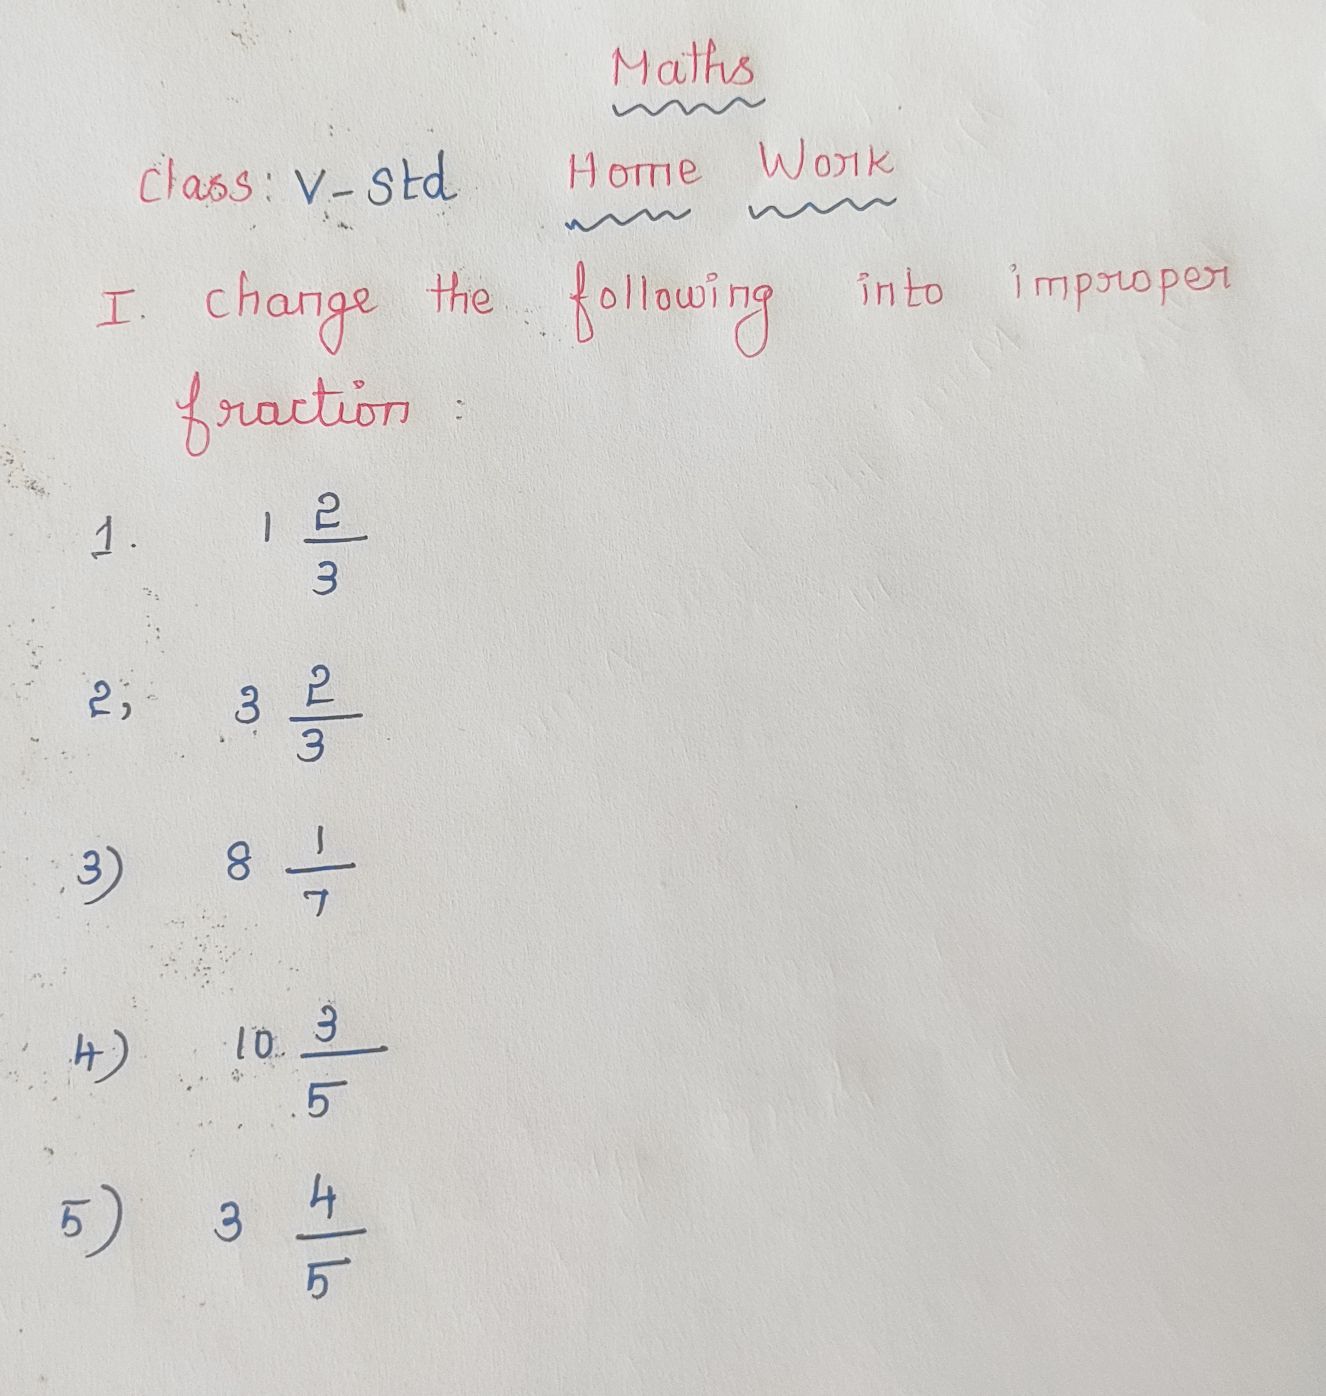 Maths
Class: V-Std Home Work
I. Change the following into improper
fraction :
1. 1 2/3
2, 3 2/3
3) 8 1/7
4) 10 3/5
5) 3 4/5